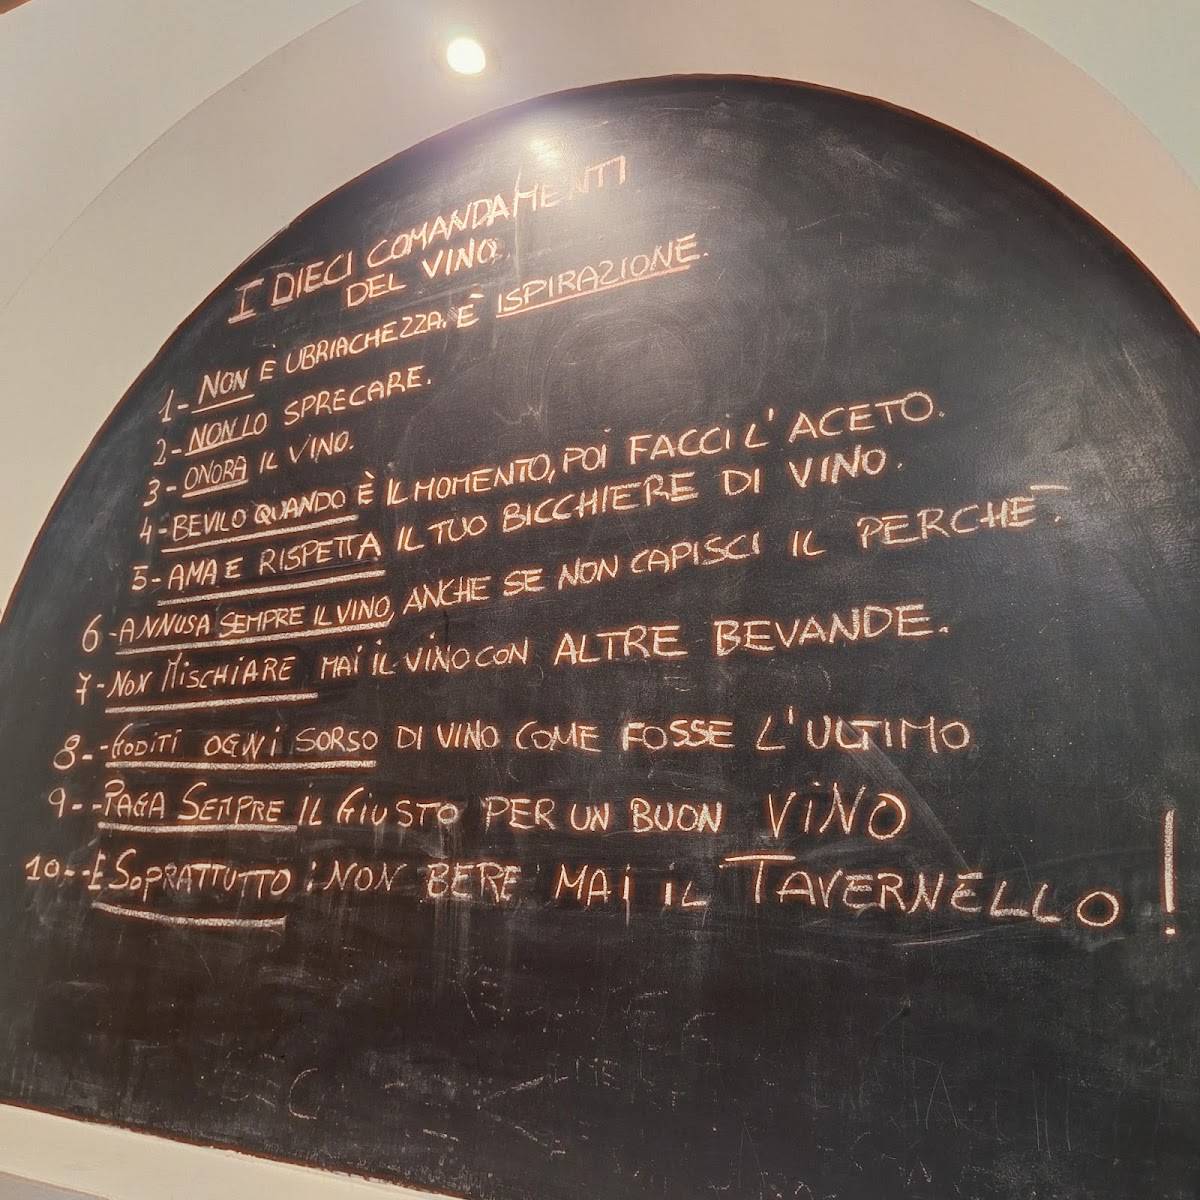 I DIECI COMANDAMENTI
DEL VINO.
1- NON E UBRIACHEZZA. È ISPIRAZIONE.
2- NON LO SPRECARE.
3- ONORA IL VINO.
4- BEVILO QUANDO È IL MOMENTO, POI FACCI L'ACETO.
5- AMA E RISPETTA IL TUO BICCHIERE DI VINO.
6- ANNUSA SEMPRE IL VINO, ANCHE SE NON CAPISCI IL PERCHÈ.
7- NON MISCHIARE MAI IL VINO CON ALTRE BEVANDE.
8-- GODITI OGNI SORSO DI VINO COME FOSSE L'ULTIMO
9-- PAGA SEMPRE IL GIUSTO PER UN BUON VINO
10-- E SOPRATTUTTO: NON BERE MAI IL TAVERNELLO!